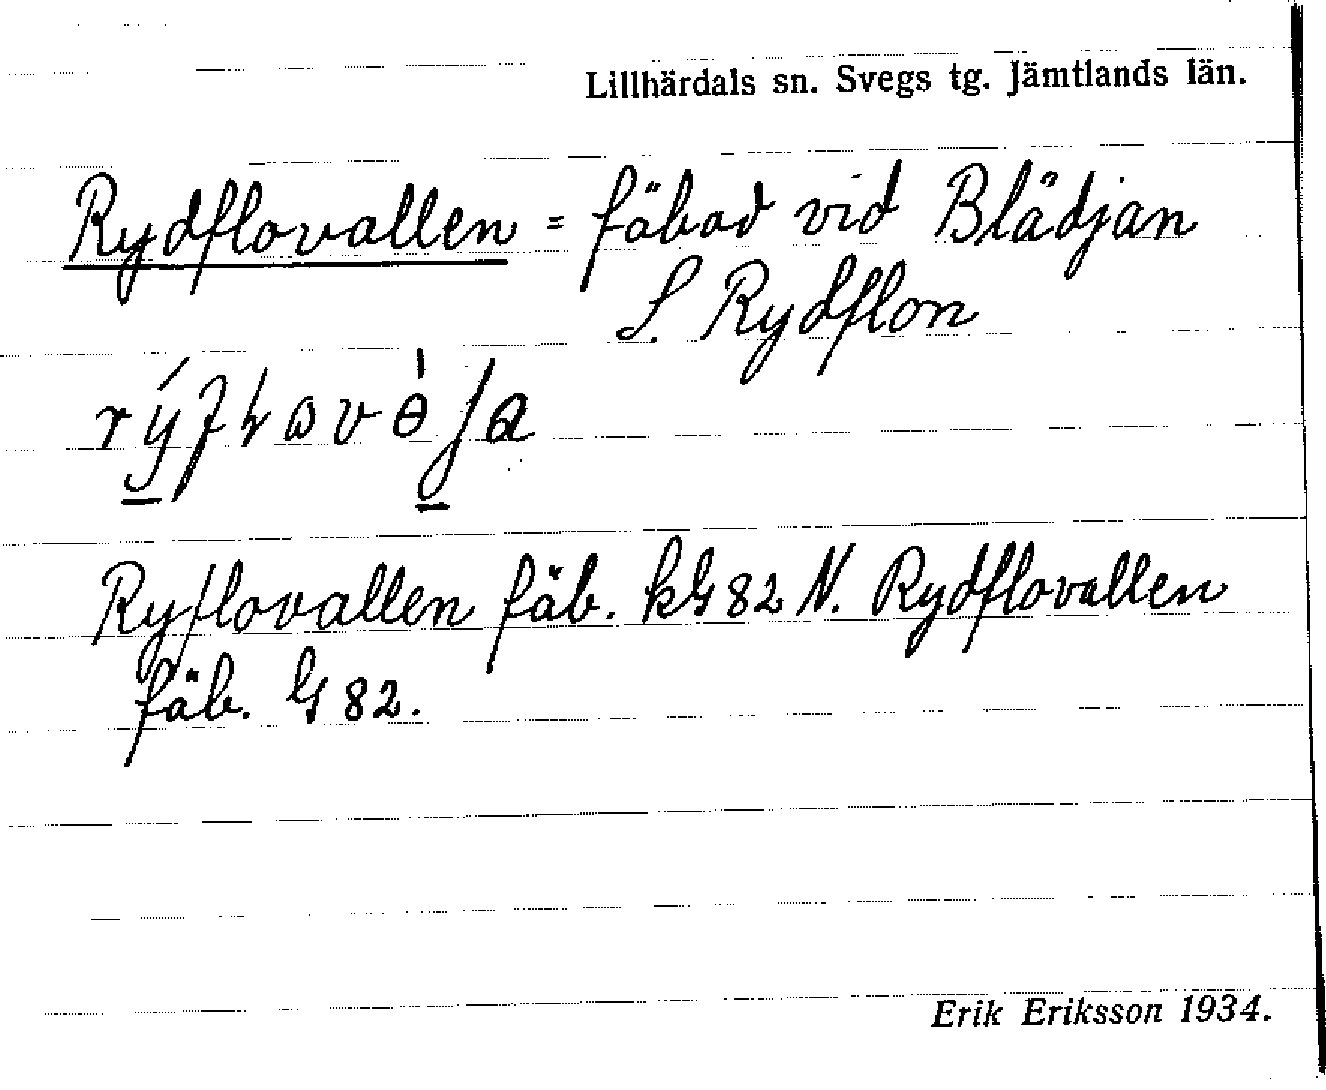 Lillhärdals sn. Svegs tg. Jämtlands län.
Rydflovallen = fäbod vid Blädjan
S. Rydflon
Ryflovallen fäb. kG 82 N. Rydflovallen
fäb. G 82.
Erik Eriksson 1934.